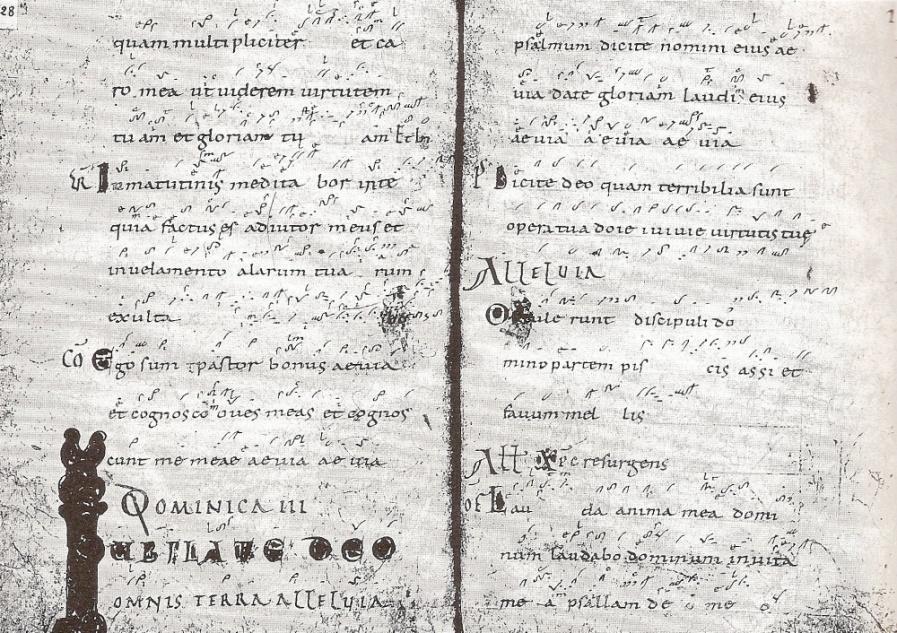 28
quam multipliciter et ca
ro mea ut uiderem uirtutem
tuam et gloriam tu am
In matutinis medita bor inte
quia factus es adiutor meus et
in uelamento alarum tua rum
exulta
Cō Ego sum pastor bonus aeuia
et cognosco oues meas et cognos
cunt me meae aeuia aeuia
DOMINICA III
IUBILATE DEO
OMNIS TERRA ALLELUIA
1
psalmum dicite nomini eius ae
uia date gloriam laudi eius
aeuia aeuia aeuia
P Dicite deo quam terribilia sunt
opera tua doie
ALLELUIA
runt discipuli dō
mino partem pis cis assi et
fauum mel lis
All Xpc resurgens
OF Lau da anima mea domi
num laudabo dominum inuita
mea psallam de o meo